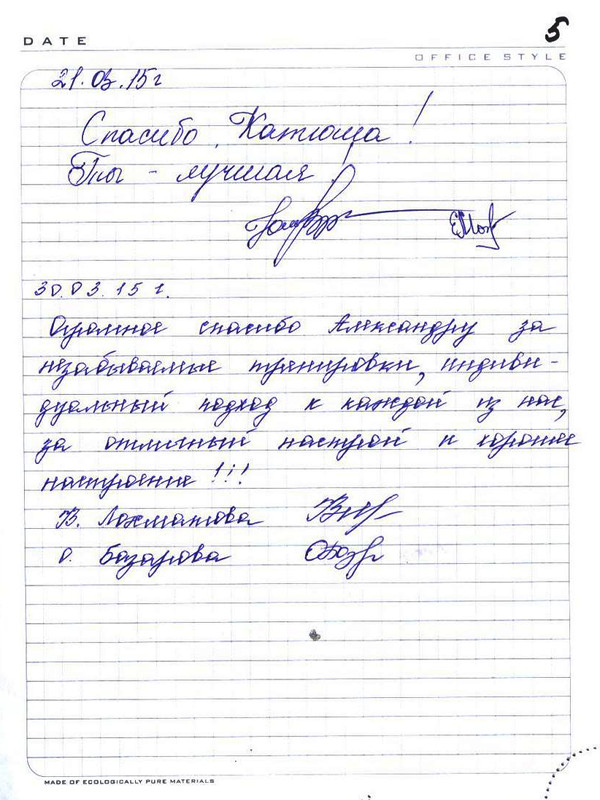 5
DATE
OFFICE STYLE
21.03.15г
Спасибо, Катюша!
Ты - лучшая!
30.03.15г.
Огромное спасибо Александру за
незабываемые тренировки, индиви-
дуальный подход к каждой из нас,
за отличный настрой и хорошее
настроение!!!
В. Лохматова
О. Базарова
MADE OF ECOLOGICALLY PURE MATERIALS